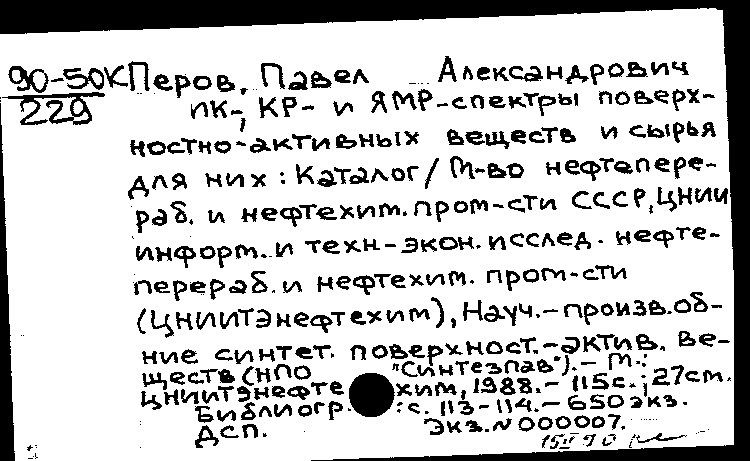 90-50К Перов, Павел Александрович
229
ИК-, КР- и ЯМР-спектры поверх-
ностно-активных веществ и сырья
для них: Каталог/М-во нефтепере-
раб. и нефтехим. пром-сти СССР, ЦНИИ
информ. и техн-экон. исслед. нефте-
перераб. и нефтехим. пром-сти
(ЦНИИТЭнефтехим), Науч.-произв. об-
ние синтет. поверхност.-актив. ве-
ществ (НПО "Синтезпав").- М.:
ЦНИИТЭнефтехим, 1988.- 115с.; 27см.
Библиогр.: с. 113-114.- 650экз.
ДСП. Экз.N 000007.
15 II 90